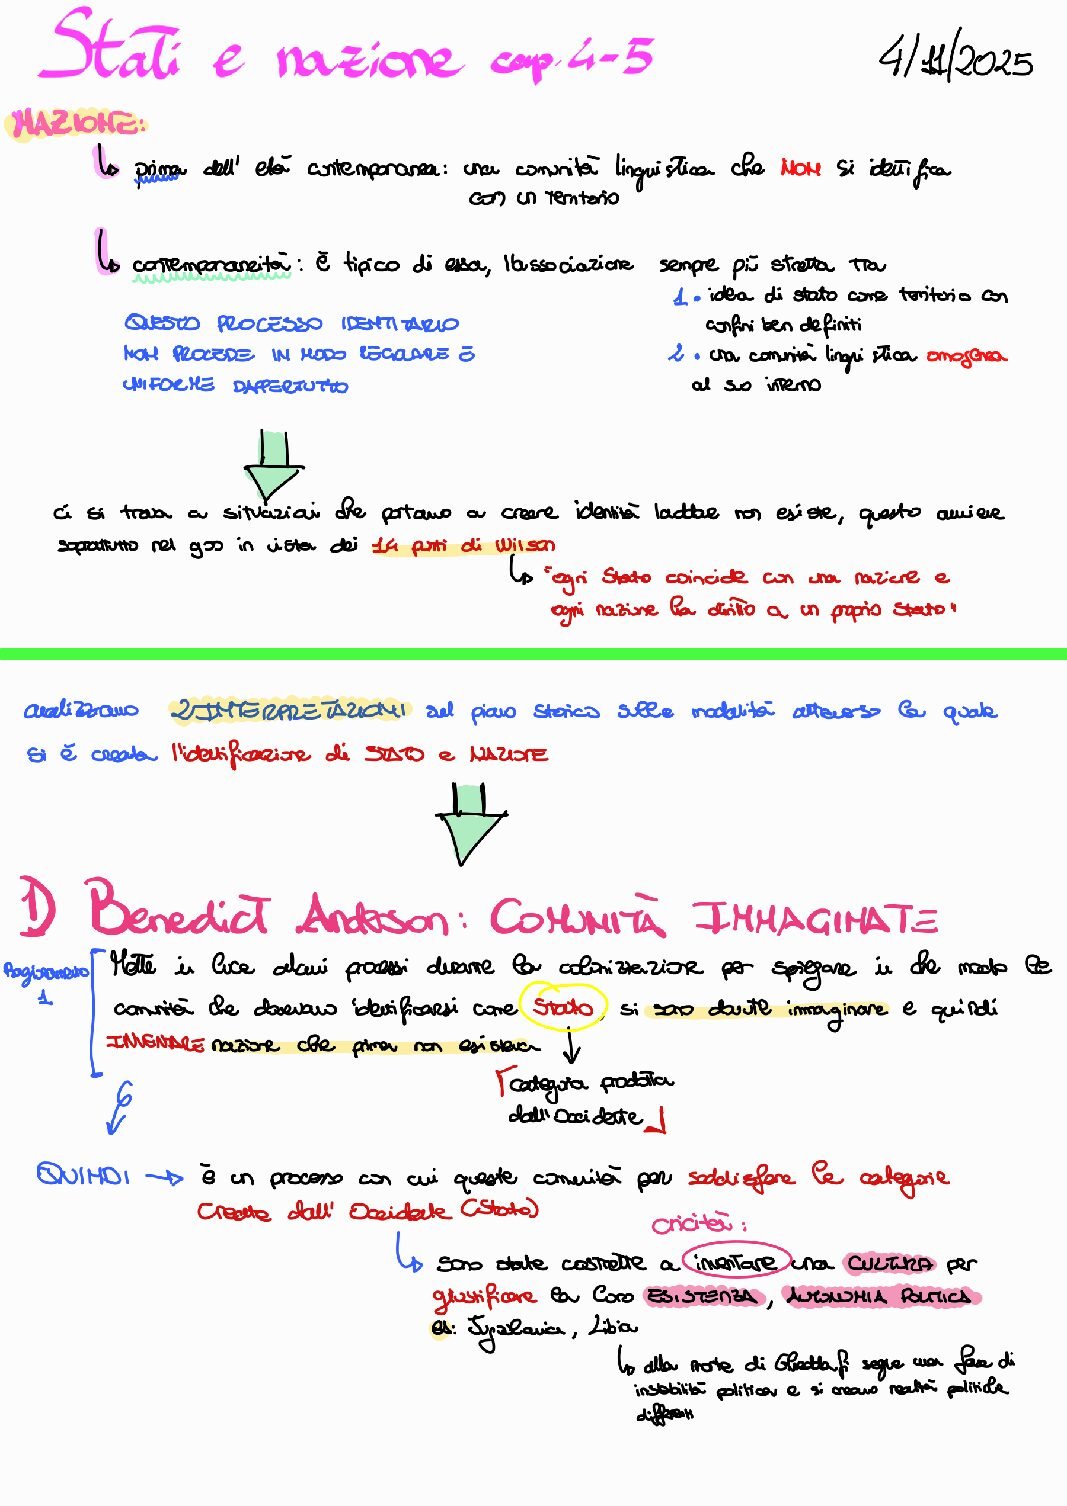 Stati e nazione cap. 4-5
4/11/2025
NAZIONE:
prima dell' età contemporanea: una comunità linguistica che NON si identifica
con un territorio
contemporaneità: è tipico di essa, l'associazione sempre più stretta tra
1. idea di stato come territorio con
confini ben definiti
2. una comunità linguistica omogenea
al suo interno
QUESTO PROCESSO IDENTITARIO
NON PROCEDE IN MODO REGOLARE E
UNIFORME DAPPERTUTTO
ci si trova a situazioni che portano a creare identità laddove non esiste, questo avviene
soprattutto nel 900 in vista dei 14 punti di Wilson
"ogni Stato coincide con una nazione e
ogni nazione ha diritto a un proprio Stato"
analizziamo 2 INTERPRETAZIONI sul piano storico sulle modalità attraverso la quale
si è creata l'identificazione di STATO e NAZIONE
1) Benedict Anderson: COMUNITÀ IMMAGINATE
Ragionamento
1.
Mette in luce alcuni processi durante la colonizzazione per spiegare in che modo le
comunità che dovevano identificarsi come Stato, si sono dovute immaginare e quindi
INVENTARE nazione che prima non esisteva
categoria prodotta
dall'Occidente
QUINDI → è un processo con cui queste comunità per soddisfare le categorie
create dall' Occidente (Stato)
cricità:
sono state costrette a inventare una CULTURA per
giustificare la loro ESISTENZA, AUTONOMIA POLITICA
es: Jugslavia, Libia
alla morte di Gheddafi segue una fase di
instabilità politica e si creano realtà politiche
differenti